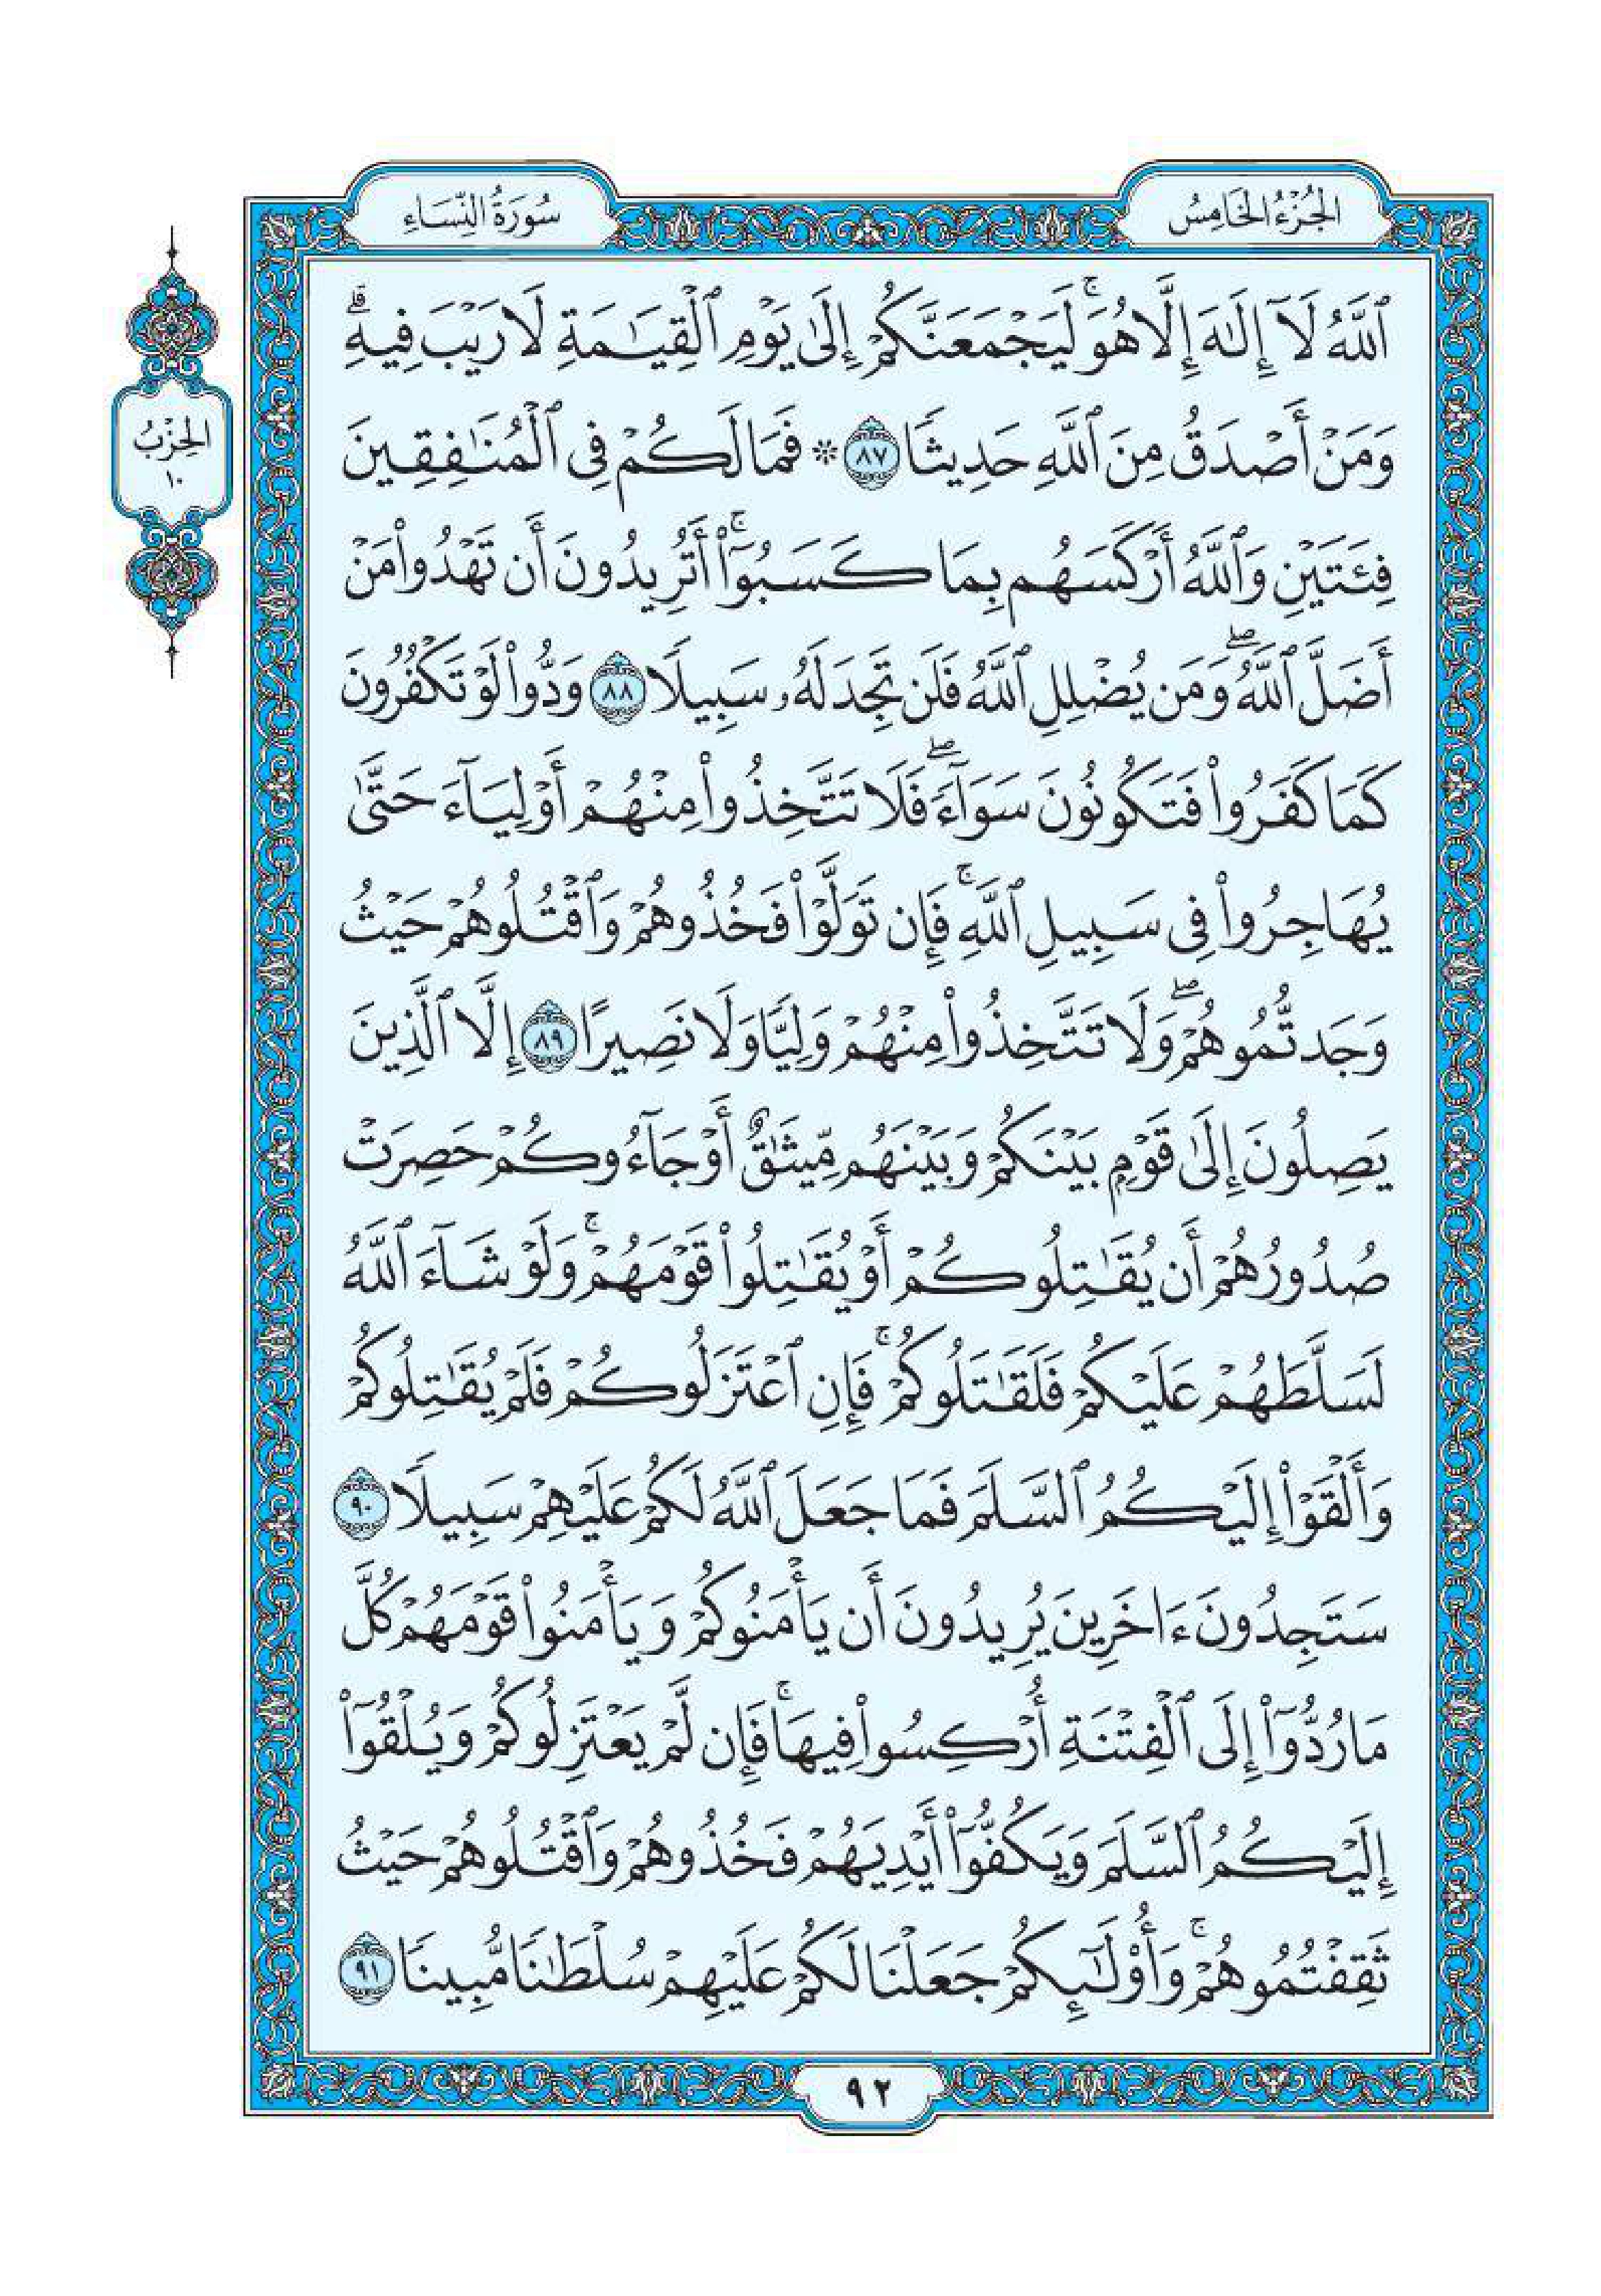 الجُزْءُ الخَامِسُ
سُورَةُ النِّسَاءِ
ٱللَّهُ لَآ إِلَٰهَ إِلَّا هُوَۚ لَيَجْمَعَنَّكُمْ إِلَىٰ يَوْمِ ٱلْقِيَٰمَةِ لَا رَيْبَ فِيهِۗ
وَمَنْ أَصْدَقُ مِنَ ٱللَّهِ حَدِيثًا ٨٧ * فَمَا لَكُمْ فِى ٱلْمُنَٰفِقِينَ
فِئَتَيْنِ وَٱللَّهُ أَرْكَسَهُم بِمَا كَسَبُوٓا۟ۚ أَتُرِيدُونَ أَن تَهْدُوا۟ مَنْ
أَضَلَّ ٱللَّهُۖ وَمَن يُضْلِلِ ٱللَّهُ فَلَن تَجِدَ لَهُۥ سَبِيلًا ٨٨ وَدُّوا۟ لَوْ تَكْفُرُونَ
كَمَا كَفَرُوا۟ فَتَكُونُونَ سَوَآءًۖ فَلَا تَتَّخِذُوا۟ مِنْهُمْ أَوْلِيَآءَ حَتَّىٰ
يُهَاجِرُوا۟ فِى سَبِيلِ ٱللَّهِۚ فَإِن تَوَلَّوْا۟ فَخُذُوهُمْ وَٱقْتُلُوهُمْ حَيْثُ
وَجَدتُّمُوهُمْۖ وَلَا تَتَّخِذُوا۟ مِنْهُمْ وَلِيًّا وَلَا نَصِيرًا ٨٩ إِلَّا ٱلَّذِينَ
يَصِلُونَ إِلَىٰ قَوْمٍۭ بَيْنَكُمْ وَبَيْنَهُم مِّيثَٰقٌ أَوْ جَآءُوكُمْ حَصِرَتْ
صُدُورُهُمْ أَن يُقَٰتِلُوكُمْ أَوْ يُقَٰتِلُوا۟ قَوْمَهُمْۚ وَلَوْ شَآءَ ٱللَّهُ
لَسَلَّطَهُمْ عَلَيْكُمْ فَلَقَٰتَلُوكُمْۚ فَإِنِ ٱعْتَزَلُوكُمْ فَلَمْ يُقَٰتِلُوكُمْ
وَأَلْقَوْا۟ إِلَيْكُمُ ٱلسَّلَمَ فَمَا جَعَلَ ٱللَّهُ لَكُمْ عَلَيْهِمْ سَبِيلًا ٩٠
سَتَجِدُونَ ءَاخَرِينَ يُرِيدُونَ أَن يَأْمَنُوكُمْ وَيَأْمَنُوا۟ قَوْمَهُمْ كُلَّ
مَا رُدُّوٓا۟ إِلَى ٱلْفِتْنَةِ أُرْكِسُوا۟ فِيهَاۚ فَإِن لَّمْ يَعْتَزِلُوكُمْ وَيُلْقُوٓا۟
إِلَيْكُمُ ٱلسَّلَمَ وَيَكُفُّوٓا۟ أَيْدِيَهُمْ فَخُذُوهُمْ وَٱقْتُلُوهُمْ حَيْثُ
ثَقِفْتُمُوهُمْۚ وَأُو۟لَٰٓئِكُمْ جَعَلْنَا لَكُمْ عَلَيْهِمْ سُلْطَٰنًا مُّبِينًا ٩١
الحِزْبُ
١٠
٩٢